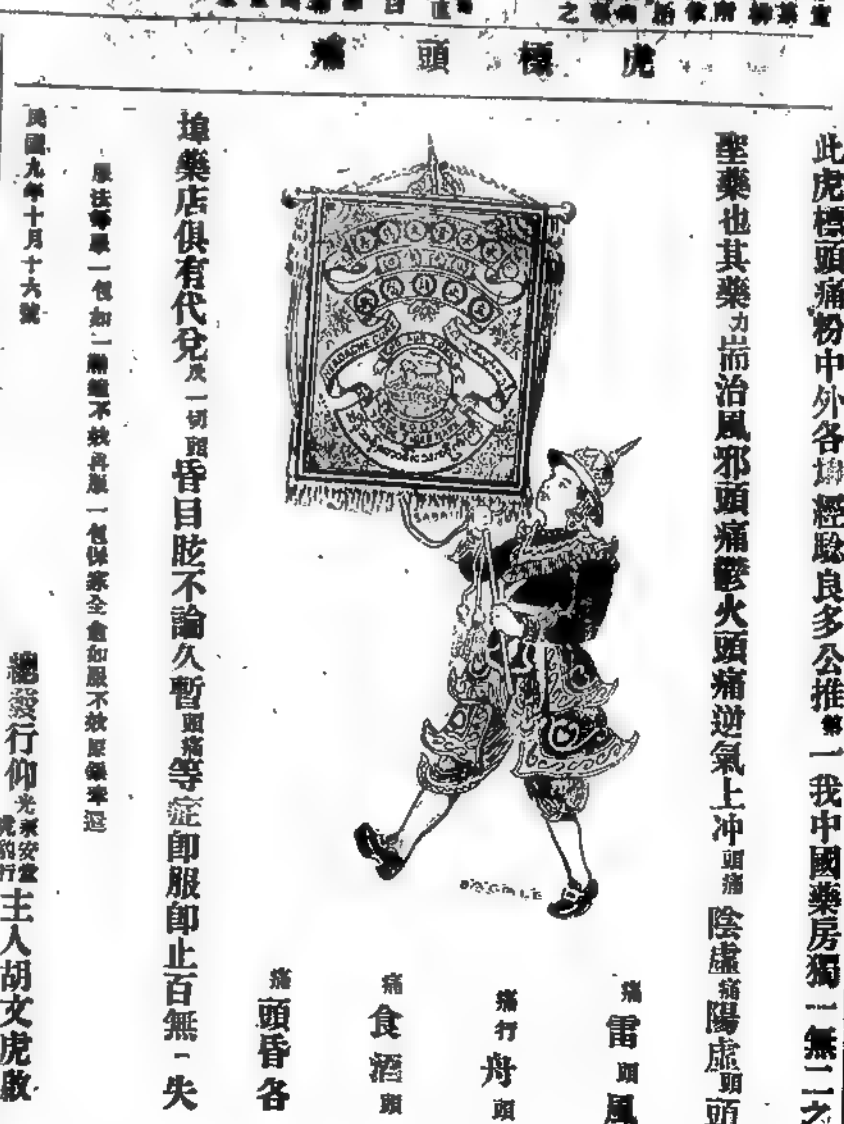 虎標頭痛
此虎標頭痛粉中外各埠經驗良多公推第一我中國藥房獨一無二之
聖藥也其藥力耑治風邪頭痛鬱火頭痛逆氣上冲頭痛陰虛痛陽虛頭頭
痛雷頭風
痛行舟頭
痛食酒頭
痛頭昏各
埠藥店俱有代兌及一切頭昏目眩不論久暫頭痛等症即服即止百無一失
服法每服一包如一點鐘不效再服一包保家全愈如服不效原銀奉還
民國九年十月十六號
總發行仰光永安堂虎豹行主人胡文虎啟
HEADACHE CURE